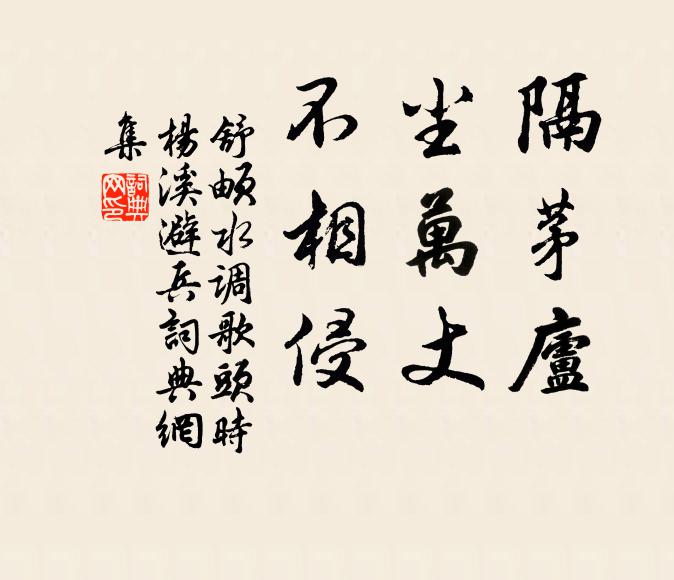 隔茅廬
尘萬丈
不相侵
舒頔水调歌頭時
楊溪避兵詞典網
集
詞典
网印